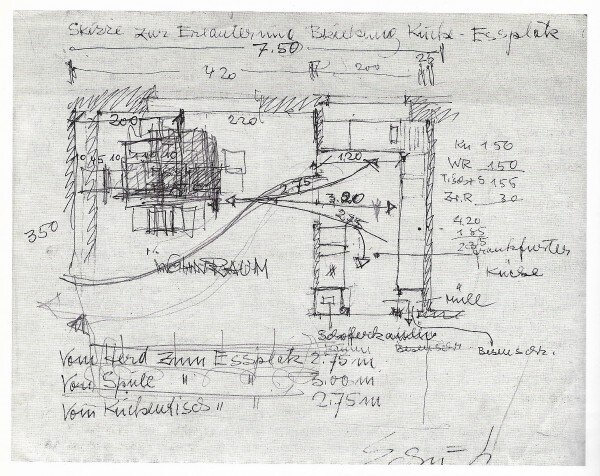 Skizze zur Erläuterung Beziehung Küche-Essplatz
7.50
25
4.20
200
200
220
1.20
2.75
3.20
2.75
350
WOHNRAUM
Kü 150
WR 150
Tisch+S 155
30
4.20
1.85
2.35
Frankfurter
Küche
Müll
Besenschr.
Besenschr.
Vom Herd zum Essplatz 2.75 m
Von Spüle " " 3.00 m
Vom Küchentisch " " 2.75 m